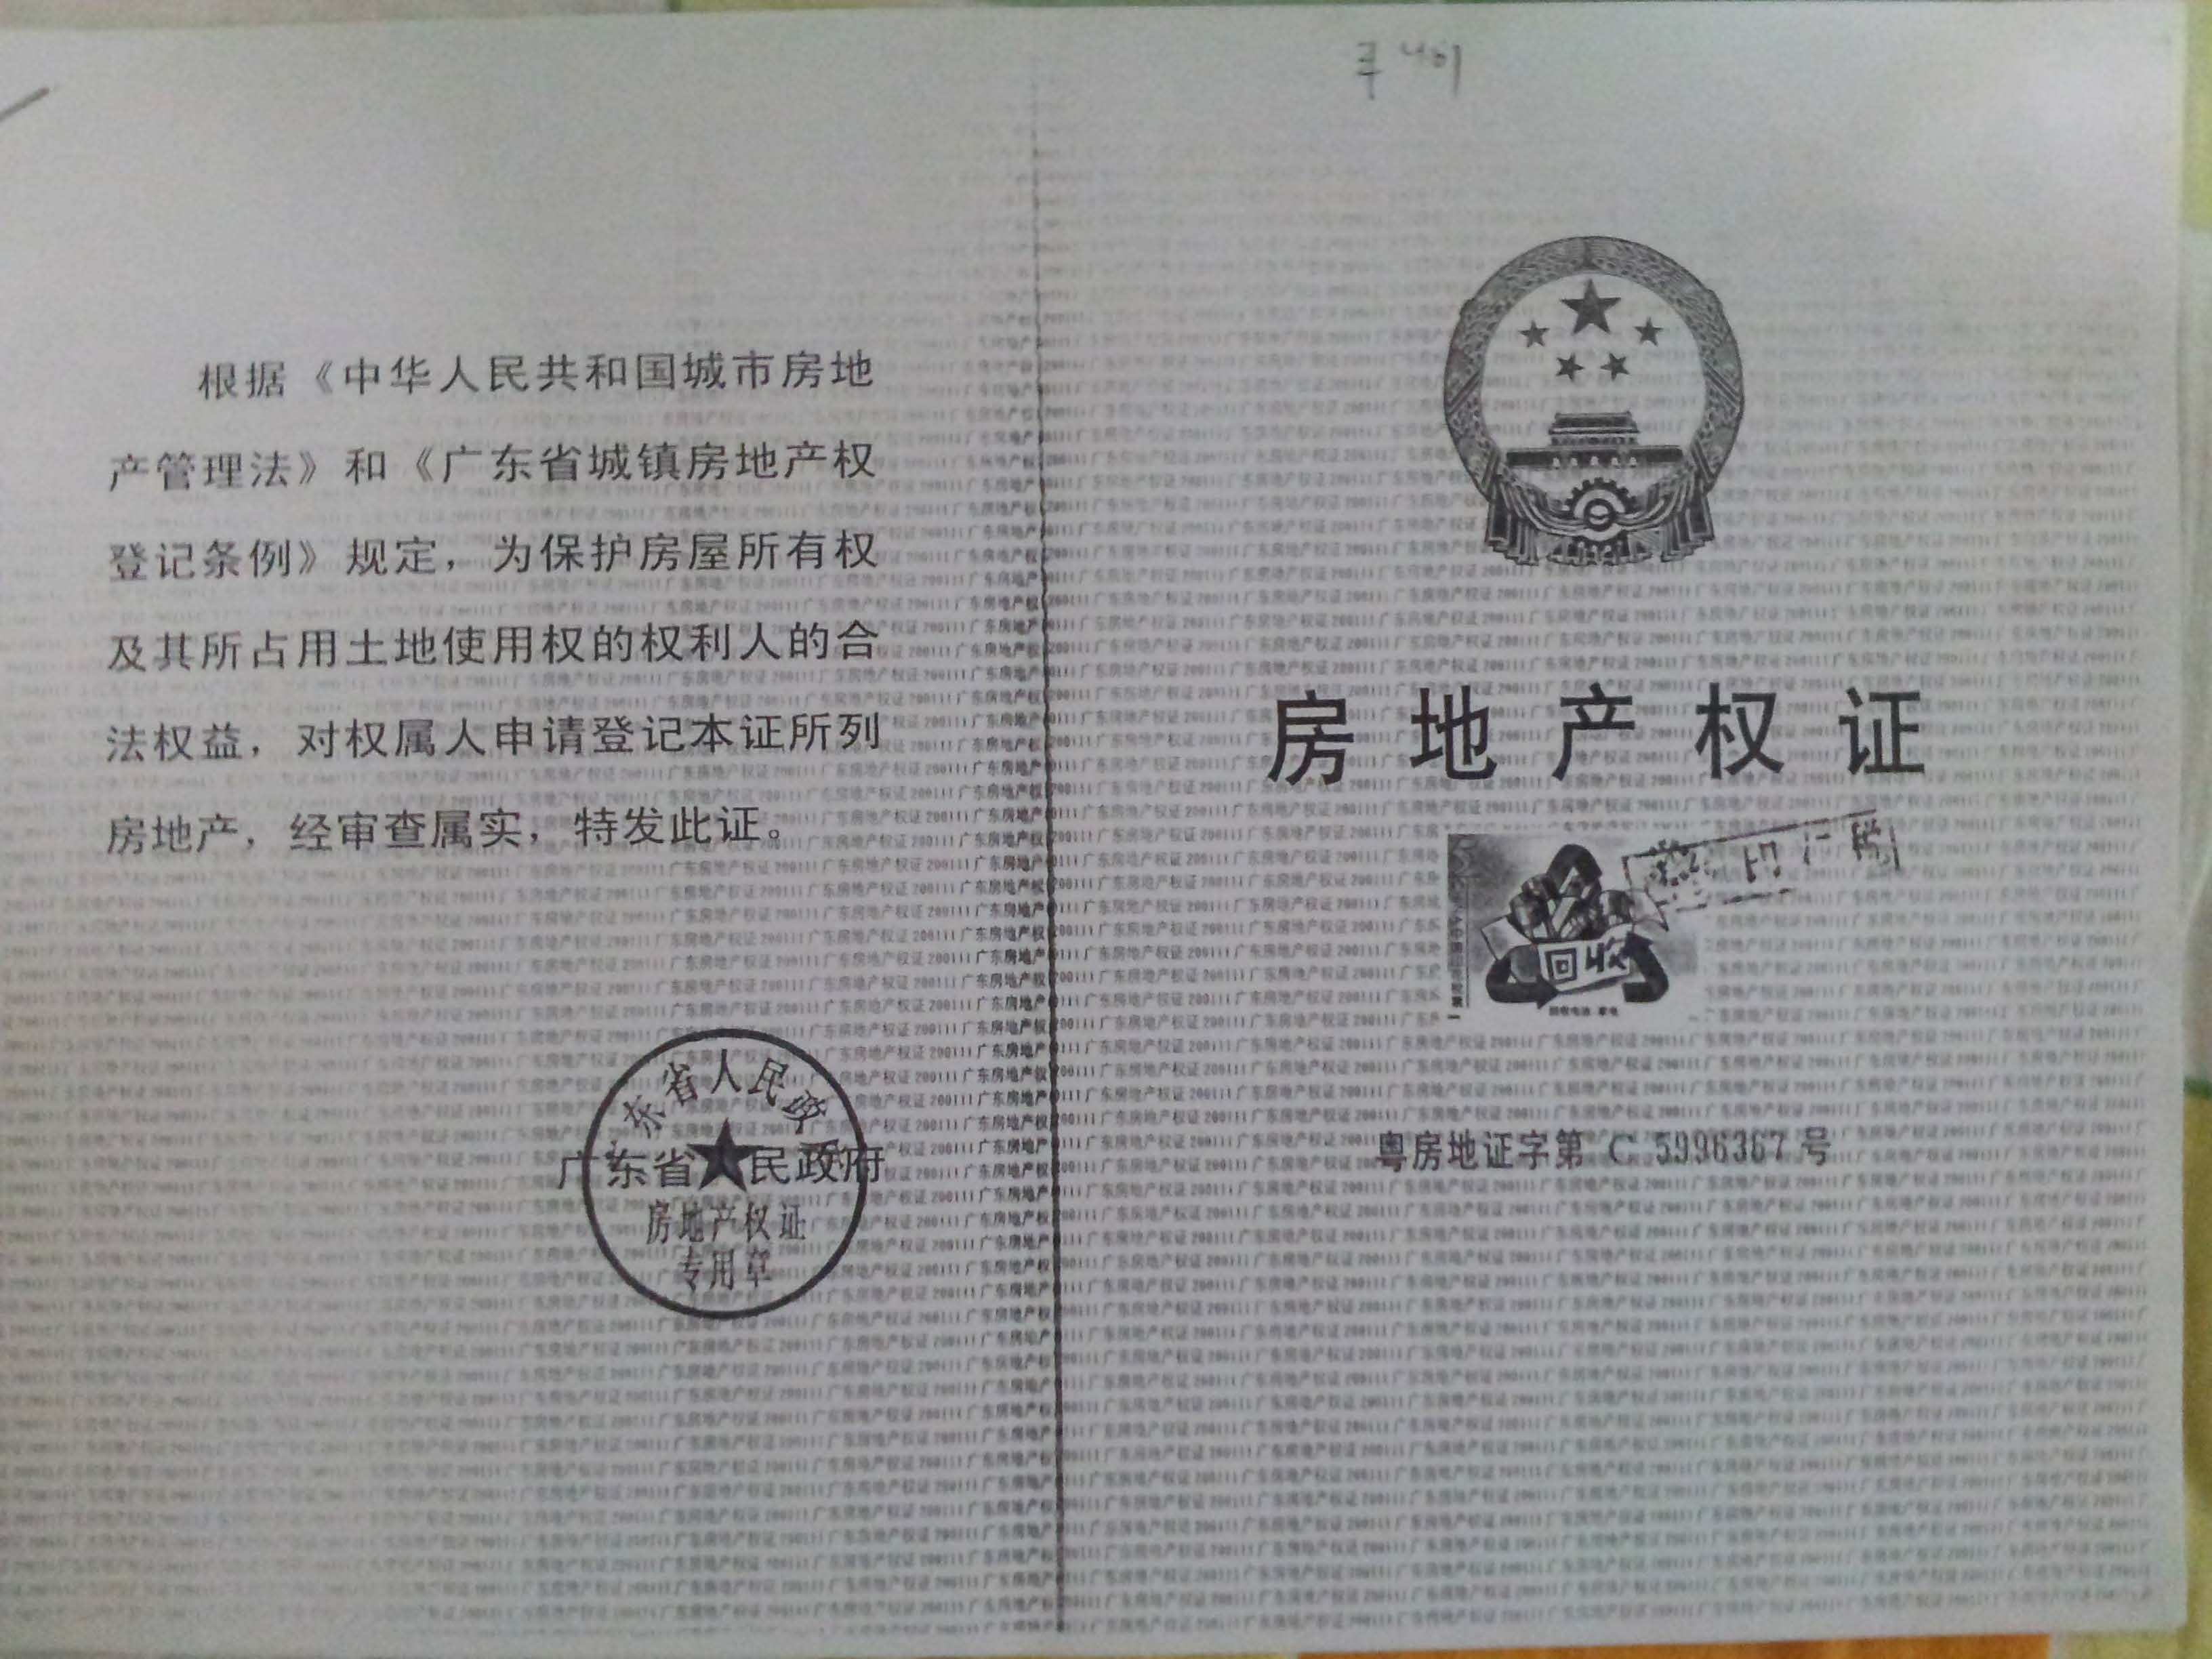 根据《中华人民共和国城市房地
产管理法》和《广东省城镇房地产权
登记条例》规定，为保护房屋所有权
及其所占用土地使用权的权利人的合
法权益，对权属人申请登记本证所列
房地产，经审查属实，特发此证。
广东省人民政府
房地产权证
专用章
房地产权证
回收
粤房地证字第 C 5996367 号